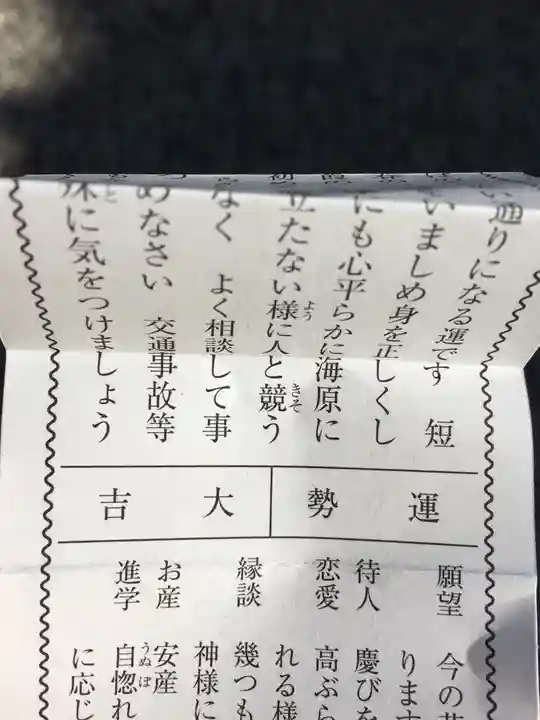 い通りになる運です 短
いましめ身を正しくし
にも心平らかに海原に
立たない様に人と競う
なく よく相談して事
めなさい 交通事故等
に気をつけましょう
運勢 大吉
願望 今の
ります
待人 慶びを
恋愛 高ぶら
れる様
縁談 幾つも
神様に
お産 安産
進学 自惚れ
に応じ